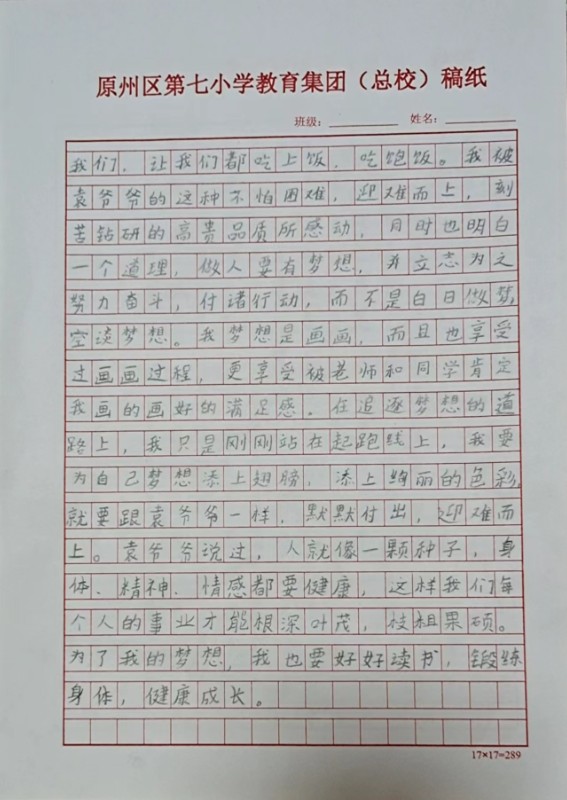 原州区第七小学教育集团（总校）稿纸
班级： 姓名：
我们，让我们都吃上饭，吃饱饭。我被
袁爷爷的这种不怕困难，迎难而上，刻
苦钻研的高贵品质所感动，同时也明白
一个道理，做人要有梦想，并立志为之
努力奋斗，付诸行动，而不是白日做梦，
空谈梦想。我梦想是画画，而且也享受
过画画过程，更享受被老师和同学肯定
我画的画好的满足感。在追逐梦想的道
路上，我只是刚刚站在起跑线上，我要
为自己梦想添上翅膀，添上绚丽的色彩，
就要跟袁爷爷一样，默默付出，迎难而
上。袁爷爷说过，人就像一颗种子，身
体、精神、情感都要健康，这样我们每
个人的事业才能根深叶茂，枝粗果硕。
为了我的梦想，我也要好好读书，锻练
身体，健康成长。
17×17=289